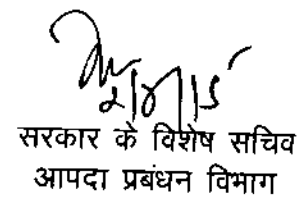 सरकार के विशेष सचिव
आपदा प्रबंधन विभाग